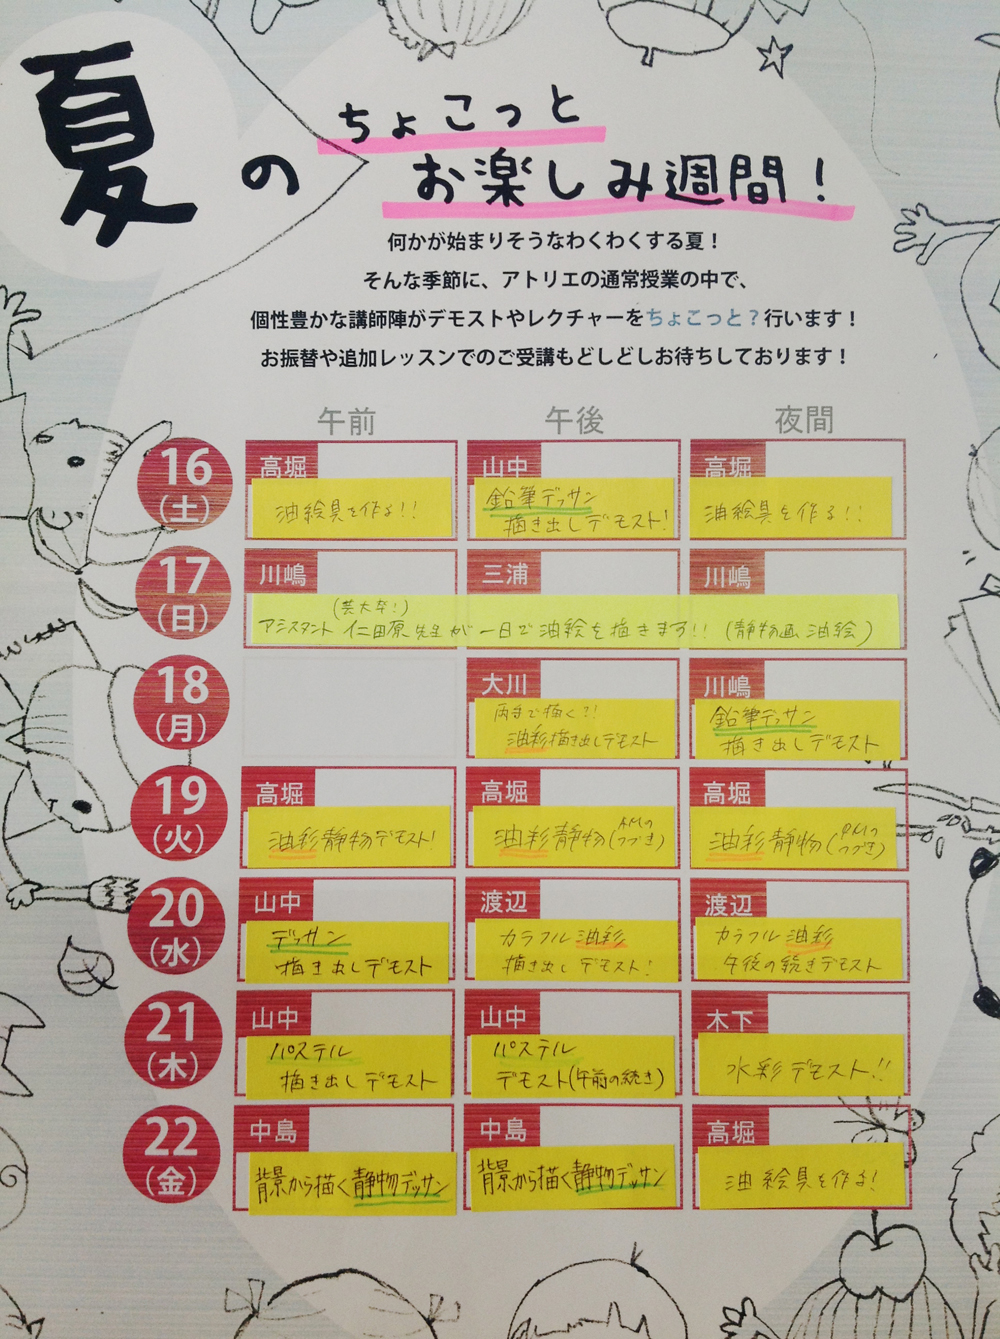 夏の
ちょこっと
お楽しみ週間！
何かが始まりそうなわくわくする夏！
そんな季節に、アトリエの通常授業の中で、
個性豊かな講師陣がデモストやレクチャーをちょこっと？行います！
お振替や追加レッスンでのご受講もどしどしお待ちしております！
午前 午後 夜間
16
(土)
高堀
油絵具を作る!!
山中
鉛筆デッサン
描き出しデモスト!
高堀
油絵具を作る!!
17
(日)
川嶋 三浦 川嶋
(芸大卒!)
アシスタント 仁田原先生が一日で油絵を描きます!! (静物画 油絵)
18
(月)
大川
両手で描く?!
油彩描き出しデモスト
川嶋
鉛筆デッサン
描き出しデモスト
19
(火)
高堀
油彩静物デモスト!
高堀
油彩静物(AMのつづき)
高堀
油彩静物(PMのつづき)
20
(水)
山中
デッサン
描き出しデモスト
渡辺
カラフル油彩
描き出しデモスト!
渡辺
カラフル油彩
午後の続きデモスト
21
(木)
山中
パステル
描き出しデモスト
山中
パステル
デモスト(午前の続き)
木下
水彩デモスト!!
22
(金)
中島
背景から描く静物デッサン
中島
背景から描く静物デッサン
高堀
油絵具を作る!